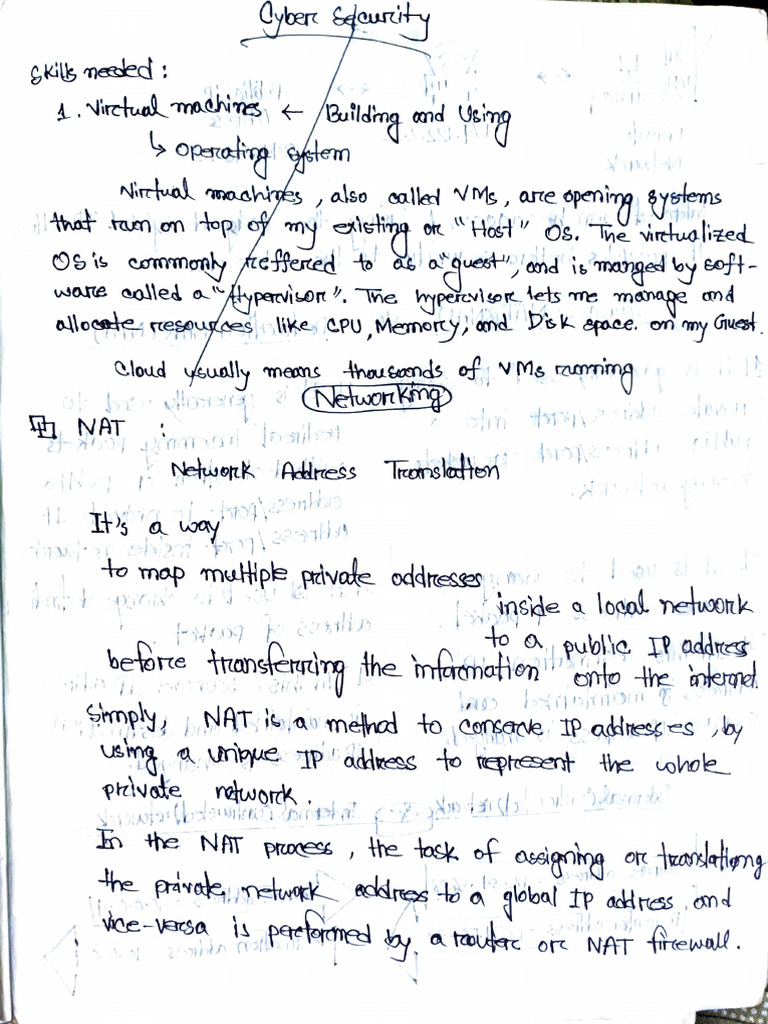 Cyber Security
Skills needed :
1. Virctual machines ← Building and Using
↳ Operating system
Virtual machines, also called VMs, are opening systems
that run on top of my existing or "Host" OS. The virctualized
OS is commonly reffered to as a "guest", and is manged by soft-
ware called a "Hypervisor". The hypercvisor lets me manage and
allocate resources like CPU, Memorcy, and Disk space. on my Guest.
Cloud usually means thousands of VMs running
Networking
NAT :
Network Address Translation
It's a way
to map multiple private addresses
inside a local network
to a public IP address
before transferring the information onto the internet
simply, NAT is a method to conserve IP addresses, by
using a unique IP address to represent the whole
private network.
In the NAT process, the task of assigning or translationg
the private network address to a global IP address and
vice-versa is performed by a router or NAT firewall.